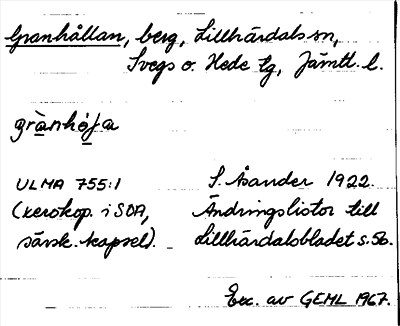 Granhållan, berg, Lillhärdals sn,
Svegs o. Hede tg, Jämtl. l.
grànhója
ULMA 755:1 S. Åsander 1922.
(xerokop. i SOA, Ändringslistor till
särsk. kapsel). Lillhärdalsbladet s. 56.
Exc. av GEHL 1967.